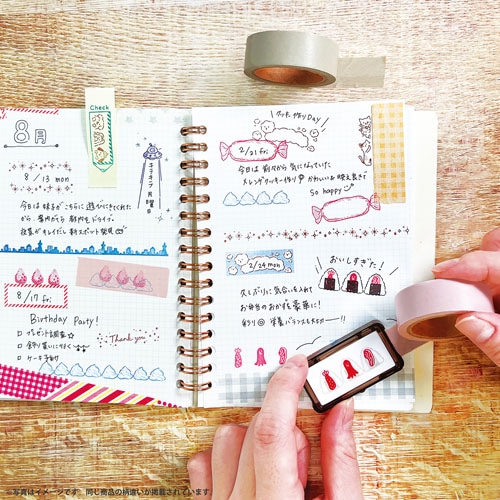 Check
8月
8/13 mon
今日は妹がこちらに遊びにきてくれた
から、都内をドライブ。
夜景がキレイだし新スポット発見
8/17 fri
Birthday Party!
プレゼント調査☆
ケーキ予約
Thank you
クッキー作りDay
2/21 fri
今日は前々から気になっていた
メレンゲクッキー作り かわいい&映え良さげ
So happy
2/24 mon
おいしすぎた!
久しぶりに気合いを入れて
お弁当のおかずを豪華に!
彩り◎ 栄養バランスも
※写真はイメージです。同じ商品の柄違いが掲載されています